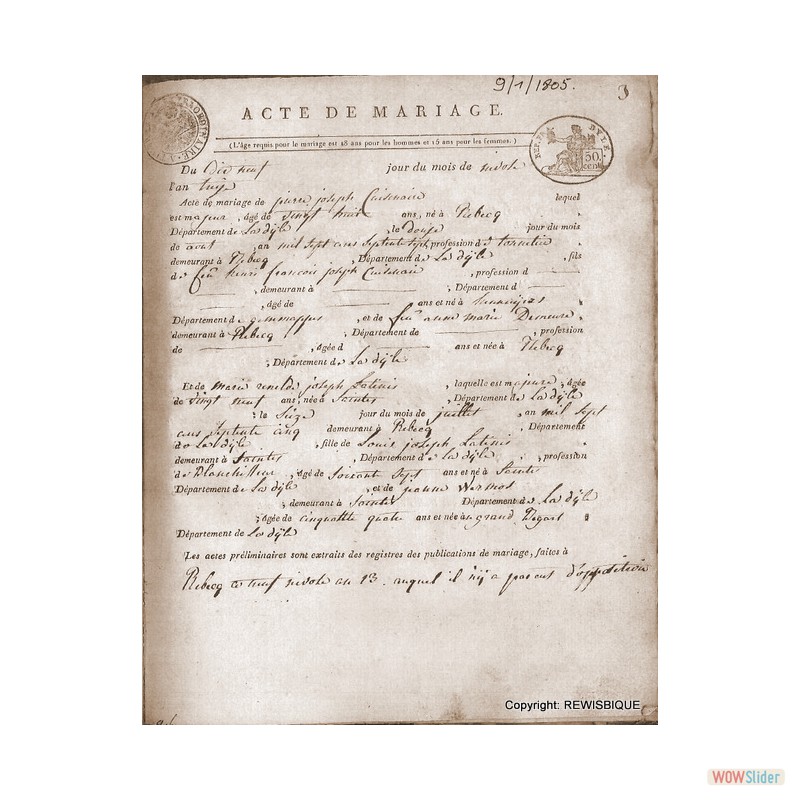 9/1/1805.
ACTE DE MARIAGE.
(L'âge requis pour le mariage est 18 ans pour les hommes et 15 ans pour les femmes.)
30. cent
Du Dix neuf jour du mois de nivose
l'an treize
Acte de mariage de pierre joseph Cuisenaire lequel
est majeur, âgé de vingt huit ans, né à Rebecq,
Département de La dÿle, le douze jour du mois
de aout, an mil sept cens septente sept, profession de
demeurant à Rebecq, Département de La dÿle, fils
de feu henri francois joseph Cuisenaire, profession d
, demeurant à ; Département d
, âgé de ans et né à
Département de gemmappes, et de feu anne marie Demeure,
demeurant à Rebecq, Département de , profession
de , âgée d ans et née à Rebecq
, Département de La dÿle
Et de marie renelde joseph Latinis, laquelle est majeure, âgée
de vingt neuf ans, née à Saintes, Département de La dÿle
; le Sieze jour du mois de juillet an mil sept
cens septente cinq demeurant à Rebecq, Département
de La dÿle, fille de Louis joseph Latinis
demeurant à Saintes, Département de La dÿle, profession
de Blanchisseur, âgé de soixant sept ans et né à Saintes
Département de La dÿle, et de jeanne
; demeurant à Saintes Département de La dÿle
; âgée de cinquante quatre ans et née à
Département de La dÿle
Les actes préliminaires sont extraits des registres des publications de mariage, faites à
Rebecq ce neuf nivose an 13. auquel il n'ÿ a pas eut d'opposition
Copyright: REWISBIQUE
WOWSlider